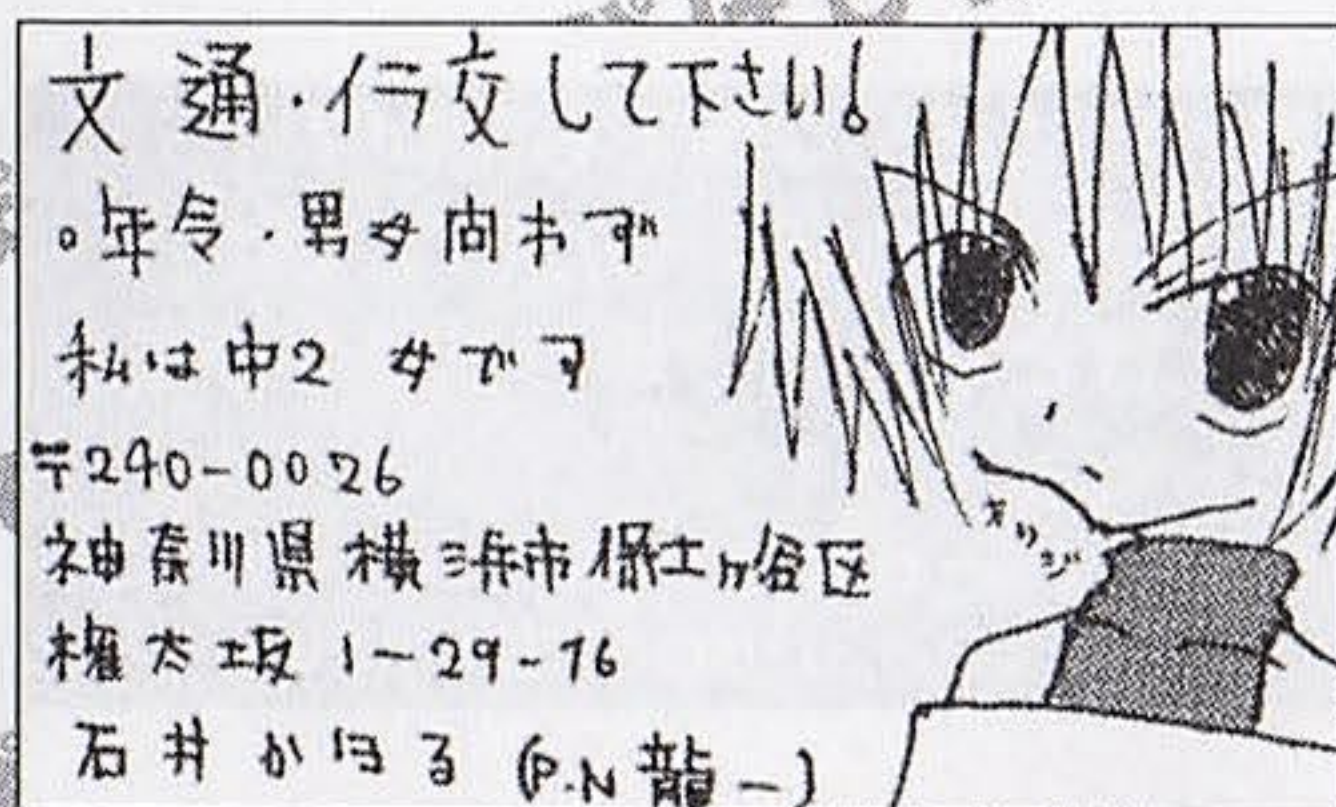 文通・イラ交して下さい!
○年令・男女問わず
私は中2 女です
〒240-0026
神奈川県横浜市保土ヶ谷区
権太坂 1-29-76
石井かほる (P.N 龍一)
オリジ